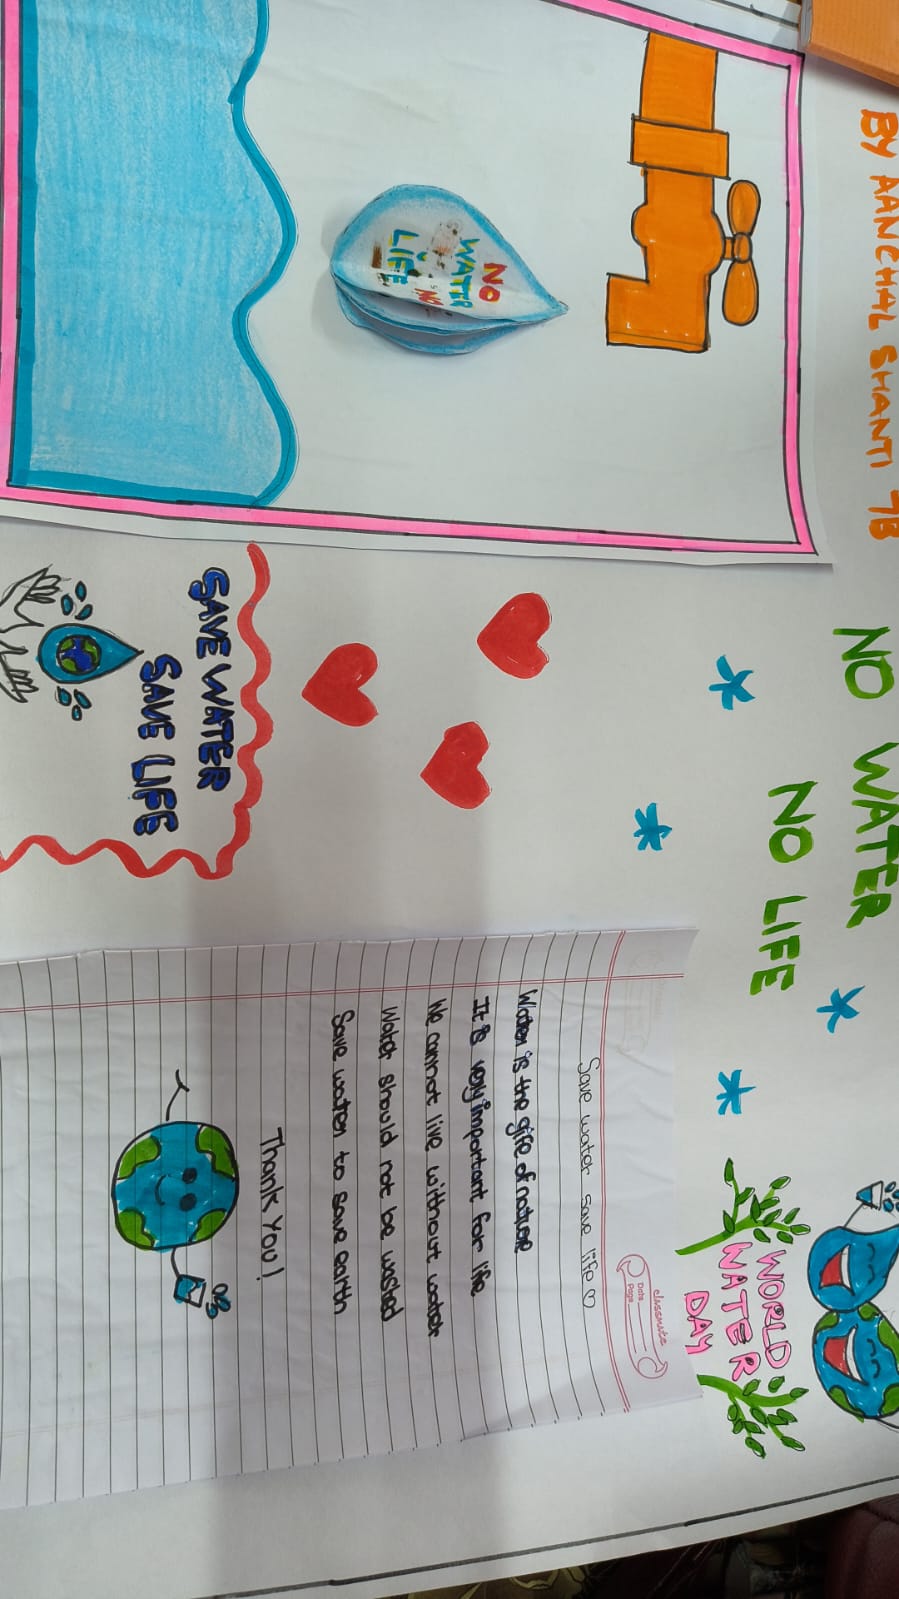 BY AANCHAL SHANTI 7B
NO WATER
NO LIFE
NO
WATER
NO
LIFE
SAVE WATER
SAVE LIFE
WORLD
WATER
DAY
classmate
Date
Page
Save water save life ♡
Water is the gife of nature
It is very important for life
We cannot live without water
Water should not be wasted
Save water to save earth
Thank You!